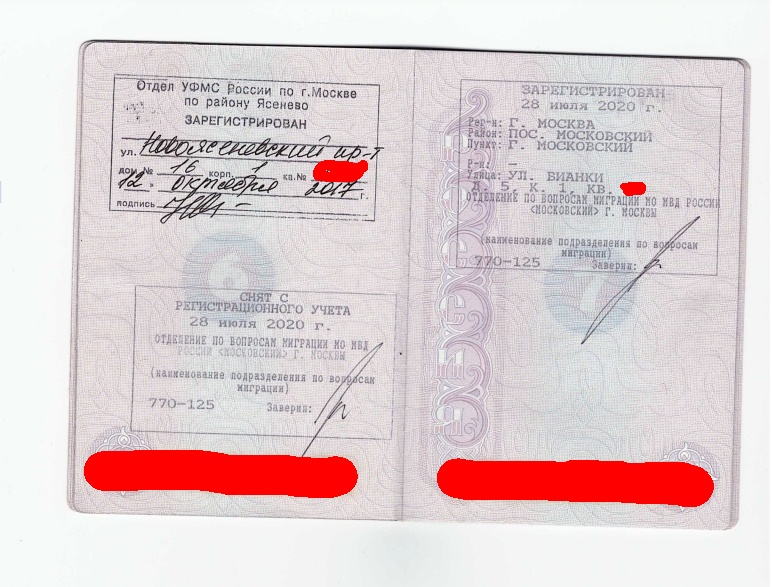 Отдел УФМС России по г.Москве
по району Ясенево
ЗАРЕГИСТРИРОВАН
ул. Новоясеневский пр-т
дом № 16 корп. 1 кв.№
12 " октября 2017 г.
подпись
6
СНЯТ С
РЕГИСТРАЦИОННОГО УЧЕТА
28 июля 2020 г.
ОТДЕЛЕНИЕ ПО ВОПРОСАМ МИГРАЦИИ МО МВД
РОССИИ <МОСКОВСКИЙ> Г. МОСКВЫ
(наименование подразделения по вопросам
миграции)
770-125 Заверил:
ЗАРЕГИСТРИРОВАН
28 июля 2020 г.
Рег-н: Г. МОСКВА
Район: ПОС. МОСКОВСКИЙ
Пункт: Г. МОСКОВСКИЙ
Р-н: –
Улица: УЛ. БИАНКИ
Д. 5, К. 1, КВ.
ОТДЕЛЕНИЕ ПО ВОПРОСАМ МИГРАЦИИ МО МВД РОССИИ
<МОСКОВСКИЙ> Г. МОСКВЫ
(наименование подразделения по вопросам
миграции)
770-125 Заверил:
7